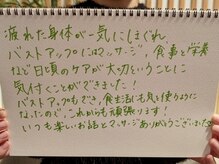 疲れた身体が一気にほぐれ
バストアップにはマッサージ、食事と栄養
など日頃のケアが大切ということに
気付くことができました!
バストアップもでき、食生活にも気を使うように
なったので、これからも頑張ります!
いつも楽しいお話とマッサージありがとうございます